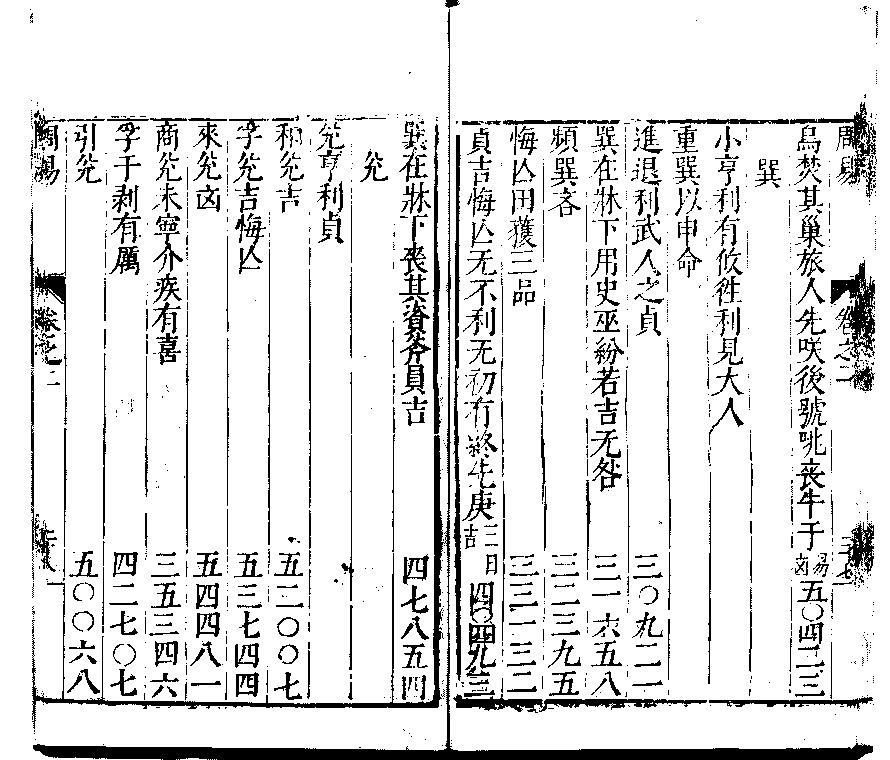 周易 卷之二
鳥焚其巢旅人先咲後號咷喪牛于易凶 五〇四二三
巽
小亨利有攸徃利見大人
重巽以申命
進退利武人之貞 三〇九二一
巽在牀下用史巫紛若吉无咎 三一六五八
頻巽吝 三二三九五
悔亾田獲三品 三三一三二
貞吉悔亾无不利无初有終先庚三日吉 四〇四九三
巽在牀下喪其資斧貞吉 四七八五四
兊
兊亨利貞
和兊吉 五二〇〇七
孚兊吉悔亾 五三七四四
來兊凶 五四四八一
商兊未寧介疾有喜 三五三四六
孚于剥有厲 四二七〇七
引兊 五〇〇六八
周易 卷之二